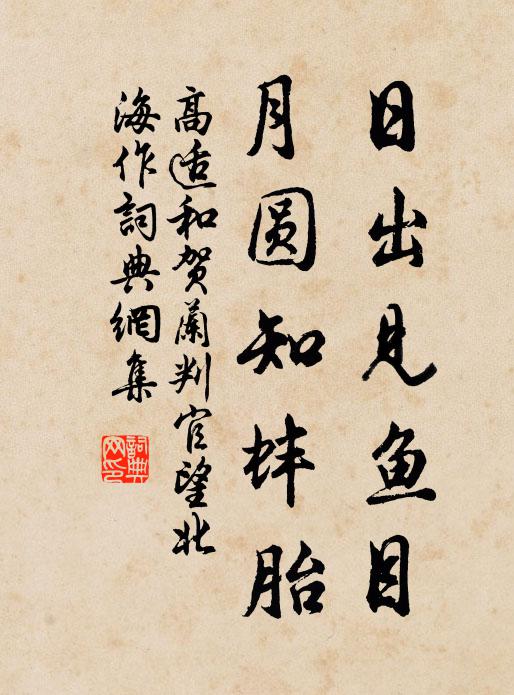 日出见鱼目
月圆知蚌胎
高适和贺兰判官望北
海作詞典網集
詞典
网印